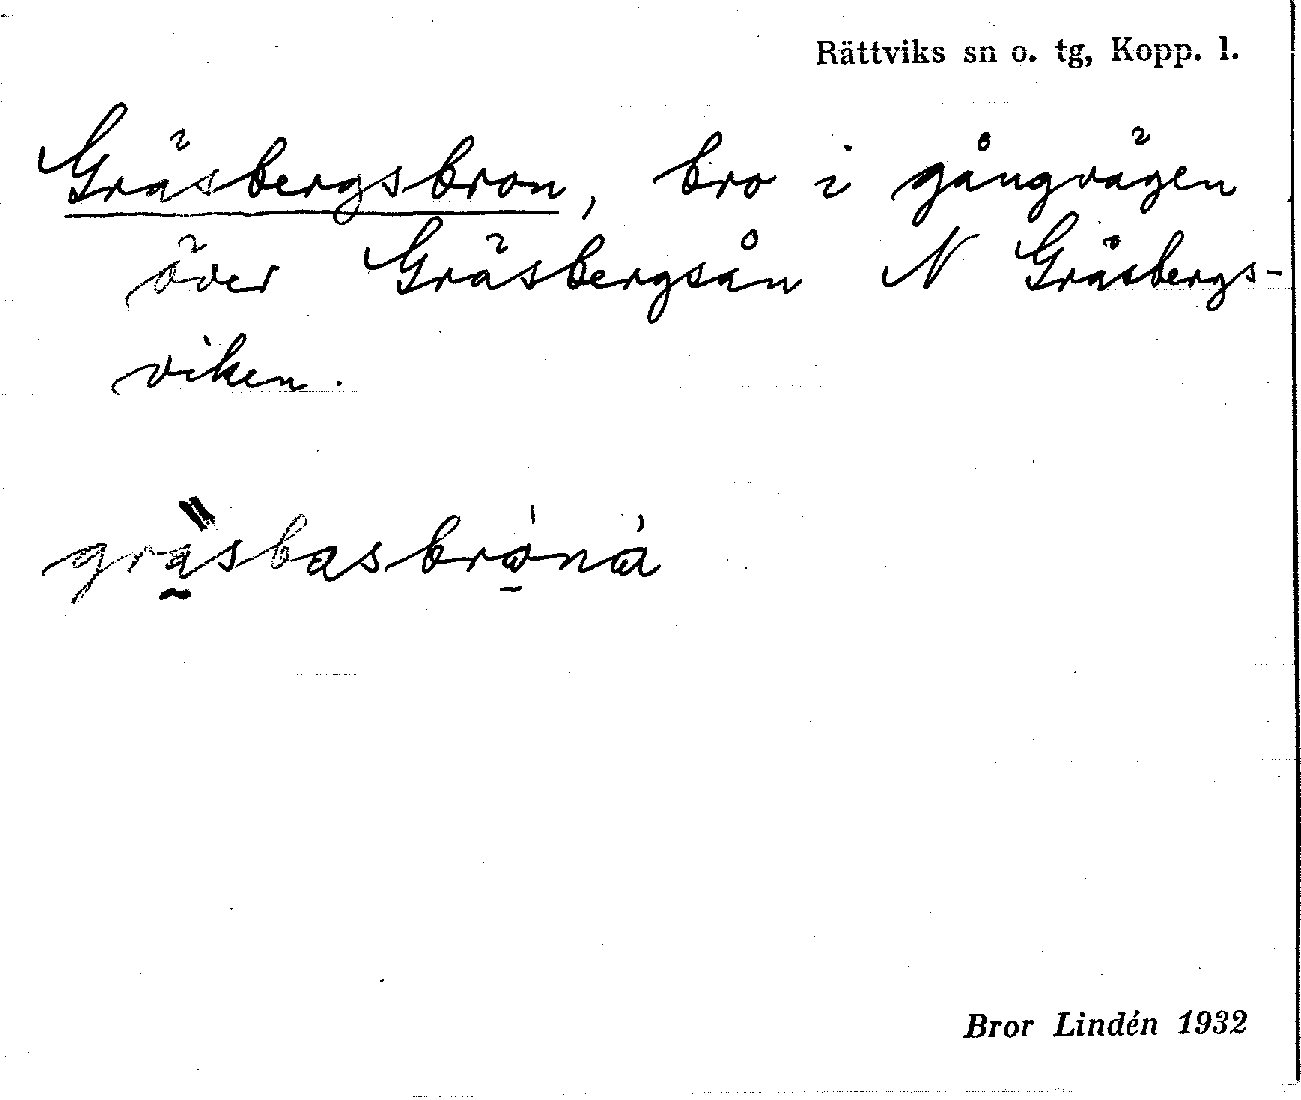 Rättviks sn o. tg, Kopp. l.
Gräsbergsbron, bro i gångvägen
över Gräsbergsån N Gräsbergs-
viken.
gräsbasbróná
Bror Lindén 1932